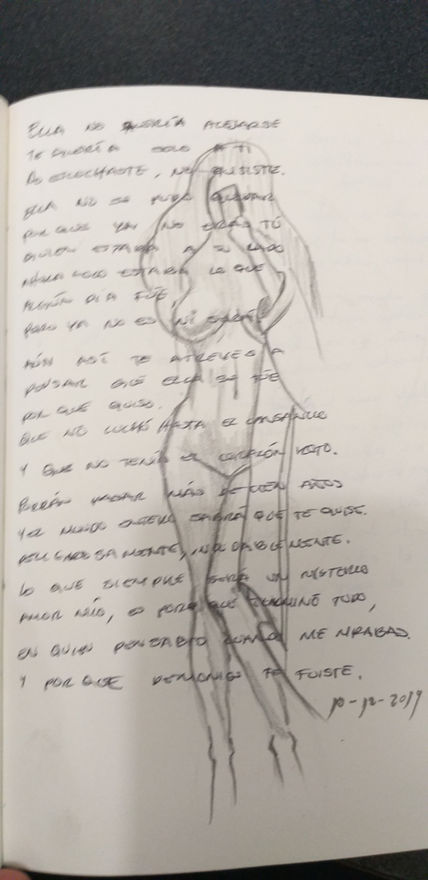 ELLA NO QUERÍA ALEJARSE
TE QUERÍA SOLO A TI
NO ESCUCHASTE, NO QUISISTE.
ELLA NO SE PUDO QUEDAR
POR QUE YA NO ERAS TÚ
QUIEN ESTABA A SU LADO
AHORA SOLO ESTABA LO QUE
ALGÚN DÍA FUE,
PERO YA NO ES NI SERÁ.
AÚN ASÍ TE ATREVES A
PENSAR QUE ELLA SE FUE
POR QUE QUISO.
QUE NO LUCHÓ HASTA EL CANSANCIO
Y QUE NO TENÍA EL CORAZÓN ROTO.
PODRÁN PASAR MÁS DE CIEN AÑOS
Y EL MUNDO ENTERO SABRÁ QUE TE QUISE.
INDUDABLEMENTE.
LO QUE SIEMPRE SERÁ UN MISTERIO
AMOR MÍO, ES POR QUE TERMINÓ TODO,
EN QUIEN PENSABAS CUANDO ME MIRABAS.
Y POR QUE DEMONIOS TE FUISTE.
10-12-2019